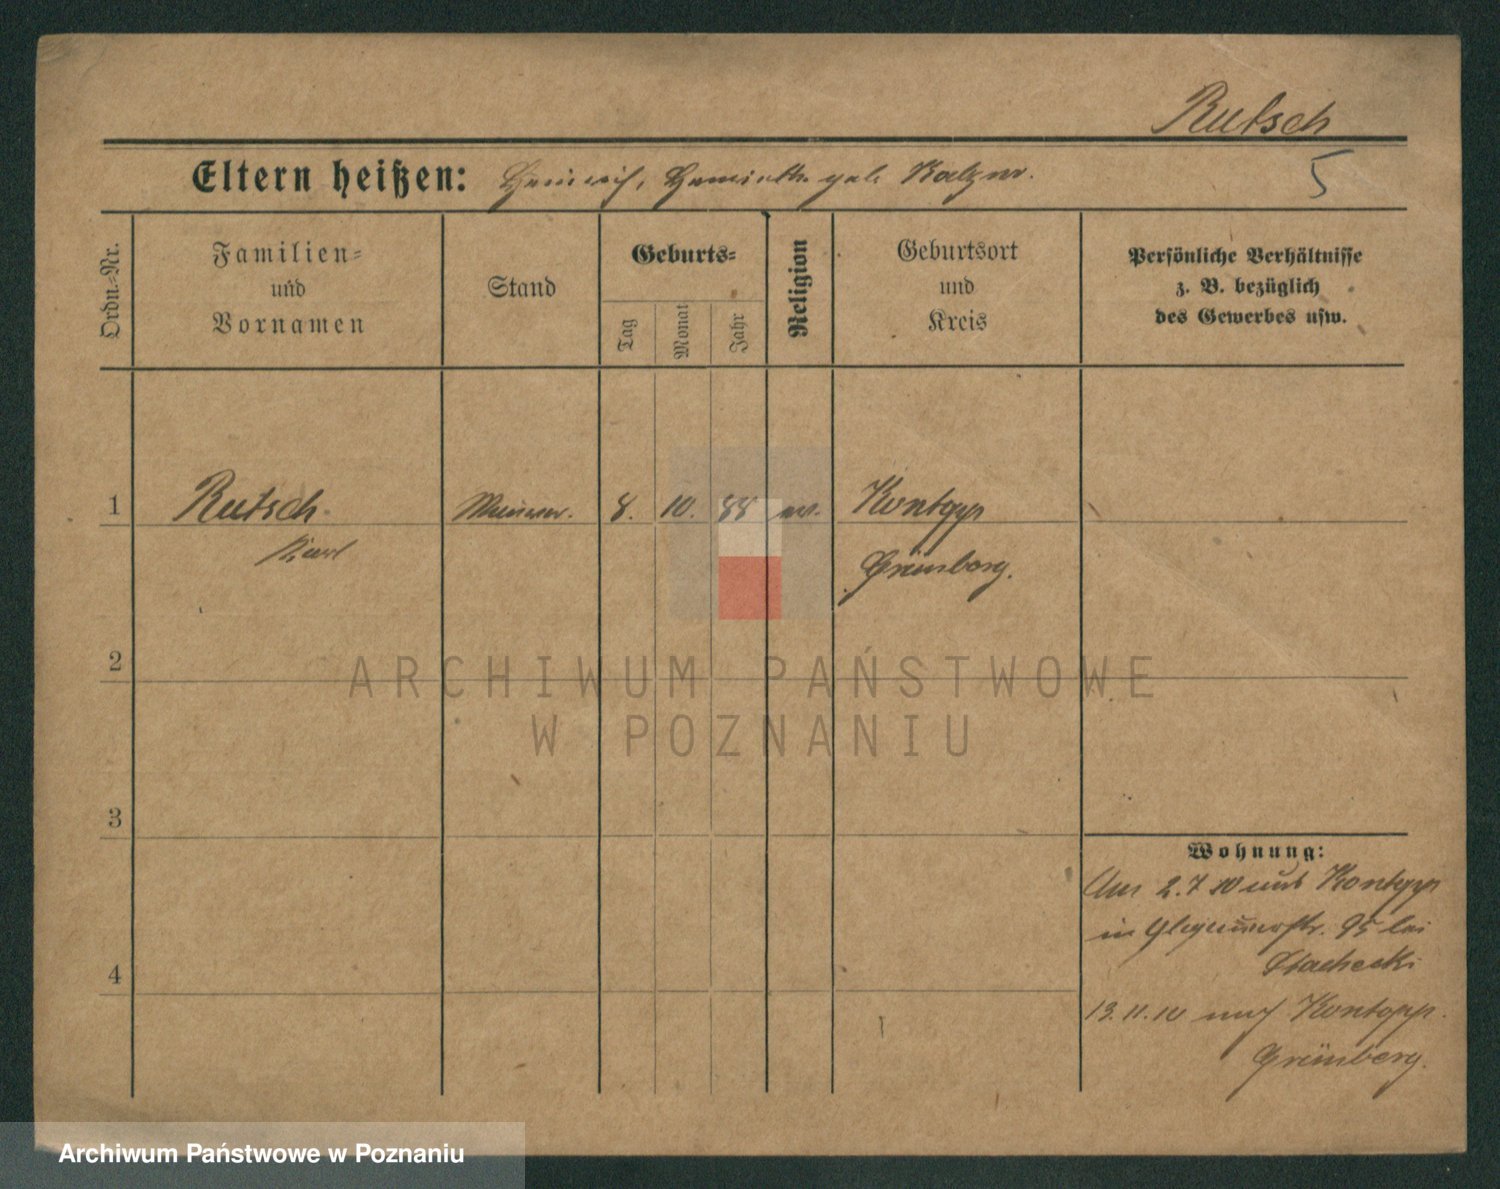 Rutsch
5
Eltern heißen: Heinrich, Henriette geb. Kalzer.
Ordn.-Nr.
Familien-
und
Vornamen
Stand
Geburts-
Tag
Monat
Jahr
Religion
Geburtsort
und
Kreis
Persönliche Verhältnisse
z. B. bezüglich
des Gewerbes usw.
1 Rutsch Maurer. 8. 10. 88 ev. Kontopp
Karl Grünberg.
2
3
4
Wohnung:
Am 2.7 10 aus Kontopp
in 95 bei
Stachecki
13.11.10 nach Kontopp.
Grünberg.
ARCHIWUM PAŃSTWOWE
W POZNANIU
Archiwum Państwowe w Poznaniu